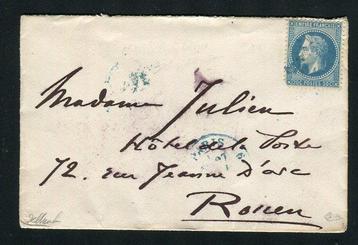 EMPIRE FRANÇAIS
20C POSTES 20C
Madame Julien
Hôtel de la Poste
72, rue Jeanne D'arc
Rouen